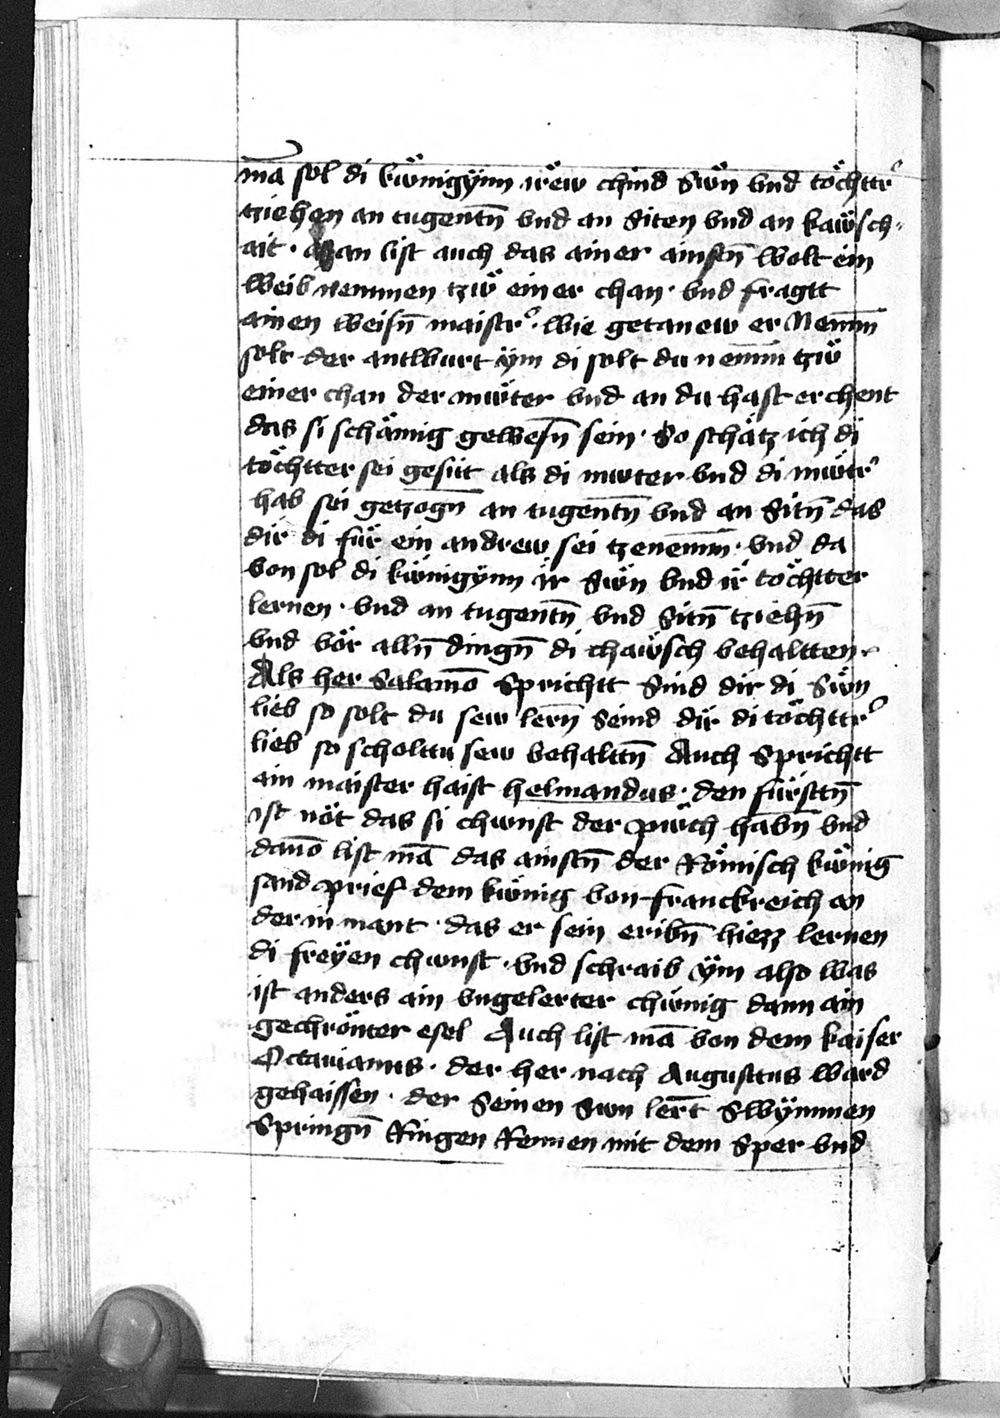 mā sol di kwͤnigÿnn irͤew chind Swͤn vnd toͤchttr᾽
tziehen an tugentn̄ vnd an Siten vnd an kawͤsch⸗
ait · Man list auch das ainer ainstn̄ wolt ein
weib nemmen tzwͦ einer chan · vnd fragtt
ainen weisn̄ maistr᾽ · wie getanew er Nemm̄
solt der antwurt ÿm di solt du nemm̄ tzwͦ
einer chan der mwͤter vnd an du hast erchent
das si schaͤmig gewesn̄ sein · So schaͤtz ich di
toͤchtter sei gesiit als di mwter vnd di mwͤtr᾽
hab sei getzogn̄ an tugentn̄ vnd an Sitn̄ das
dir di fuͤr ein andrew sei tzenemm̄ · vnd da
von sol di kwͤnigÿnn ir Swͤn vnd ir toͤchtter
lernen · vnd an tugentn̄ vnd Sitn̄ tziehn̄
vnd voͤr alln̄ dingn̄ di chawͤsch behaltten ·
Als her Salamō Sprichtt Sind dir di Swͤn
lieb so solt du sew lern̄ Seind dir di toͤchttr᾽
lieb so scholttu sew behalttn̄ Auch Sprichtt
ain maister haist helmandus · den fuͤrsttn̄
ist noͤt das si chwnst der pwͤch habn̄ vnd
dauō list mā das ainstn̄ der Roͤmisch kwͤnig
sand prief dem kwͤnig von franckreich an
der in mant · das er sein eribn̄ hiezz lernen
di freÿen chwnst · vnd schraib ÿm also was
ist anders ain vngelerter chwͤnig dann ain
gechroͤnter esel Auch list mā von dem kaiser
Octauianus · der her nach Augusttus ward
gehaissen · der Seinen Swn lert̄ Swÿmmen
Springn̄ Ringen Rennen mit dem Sper vnd